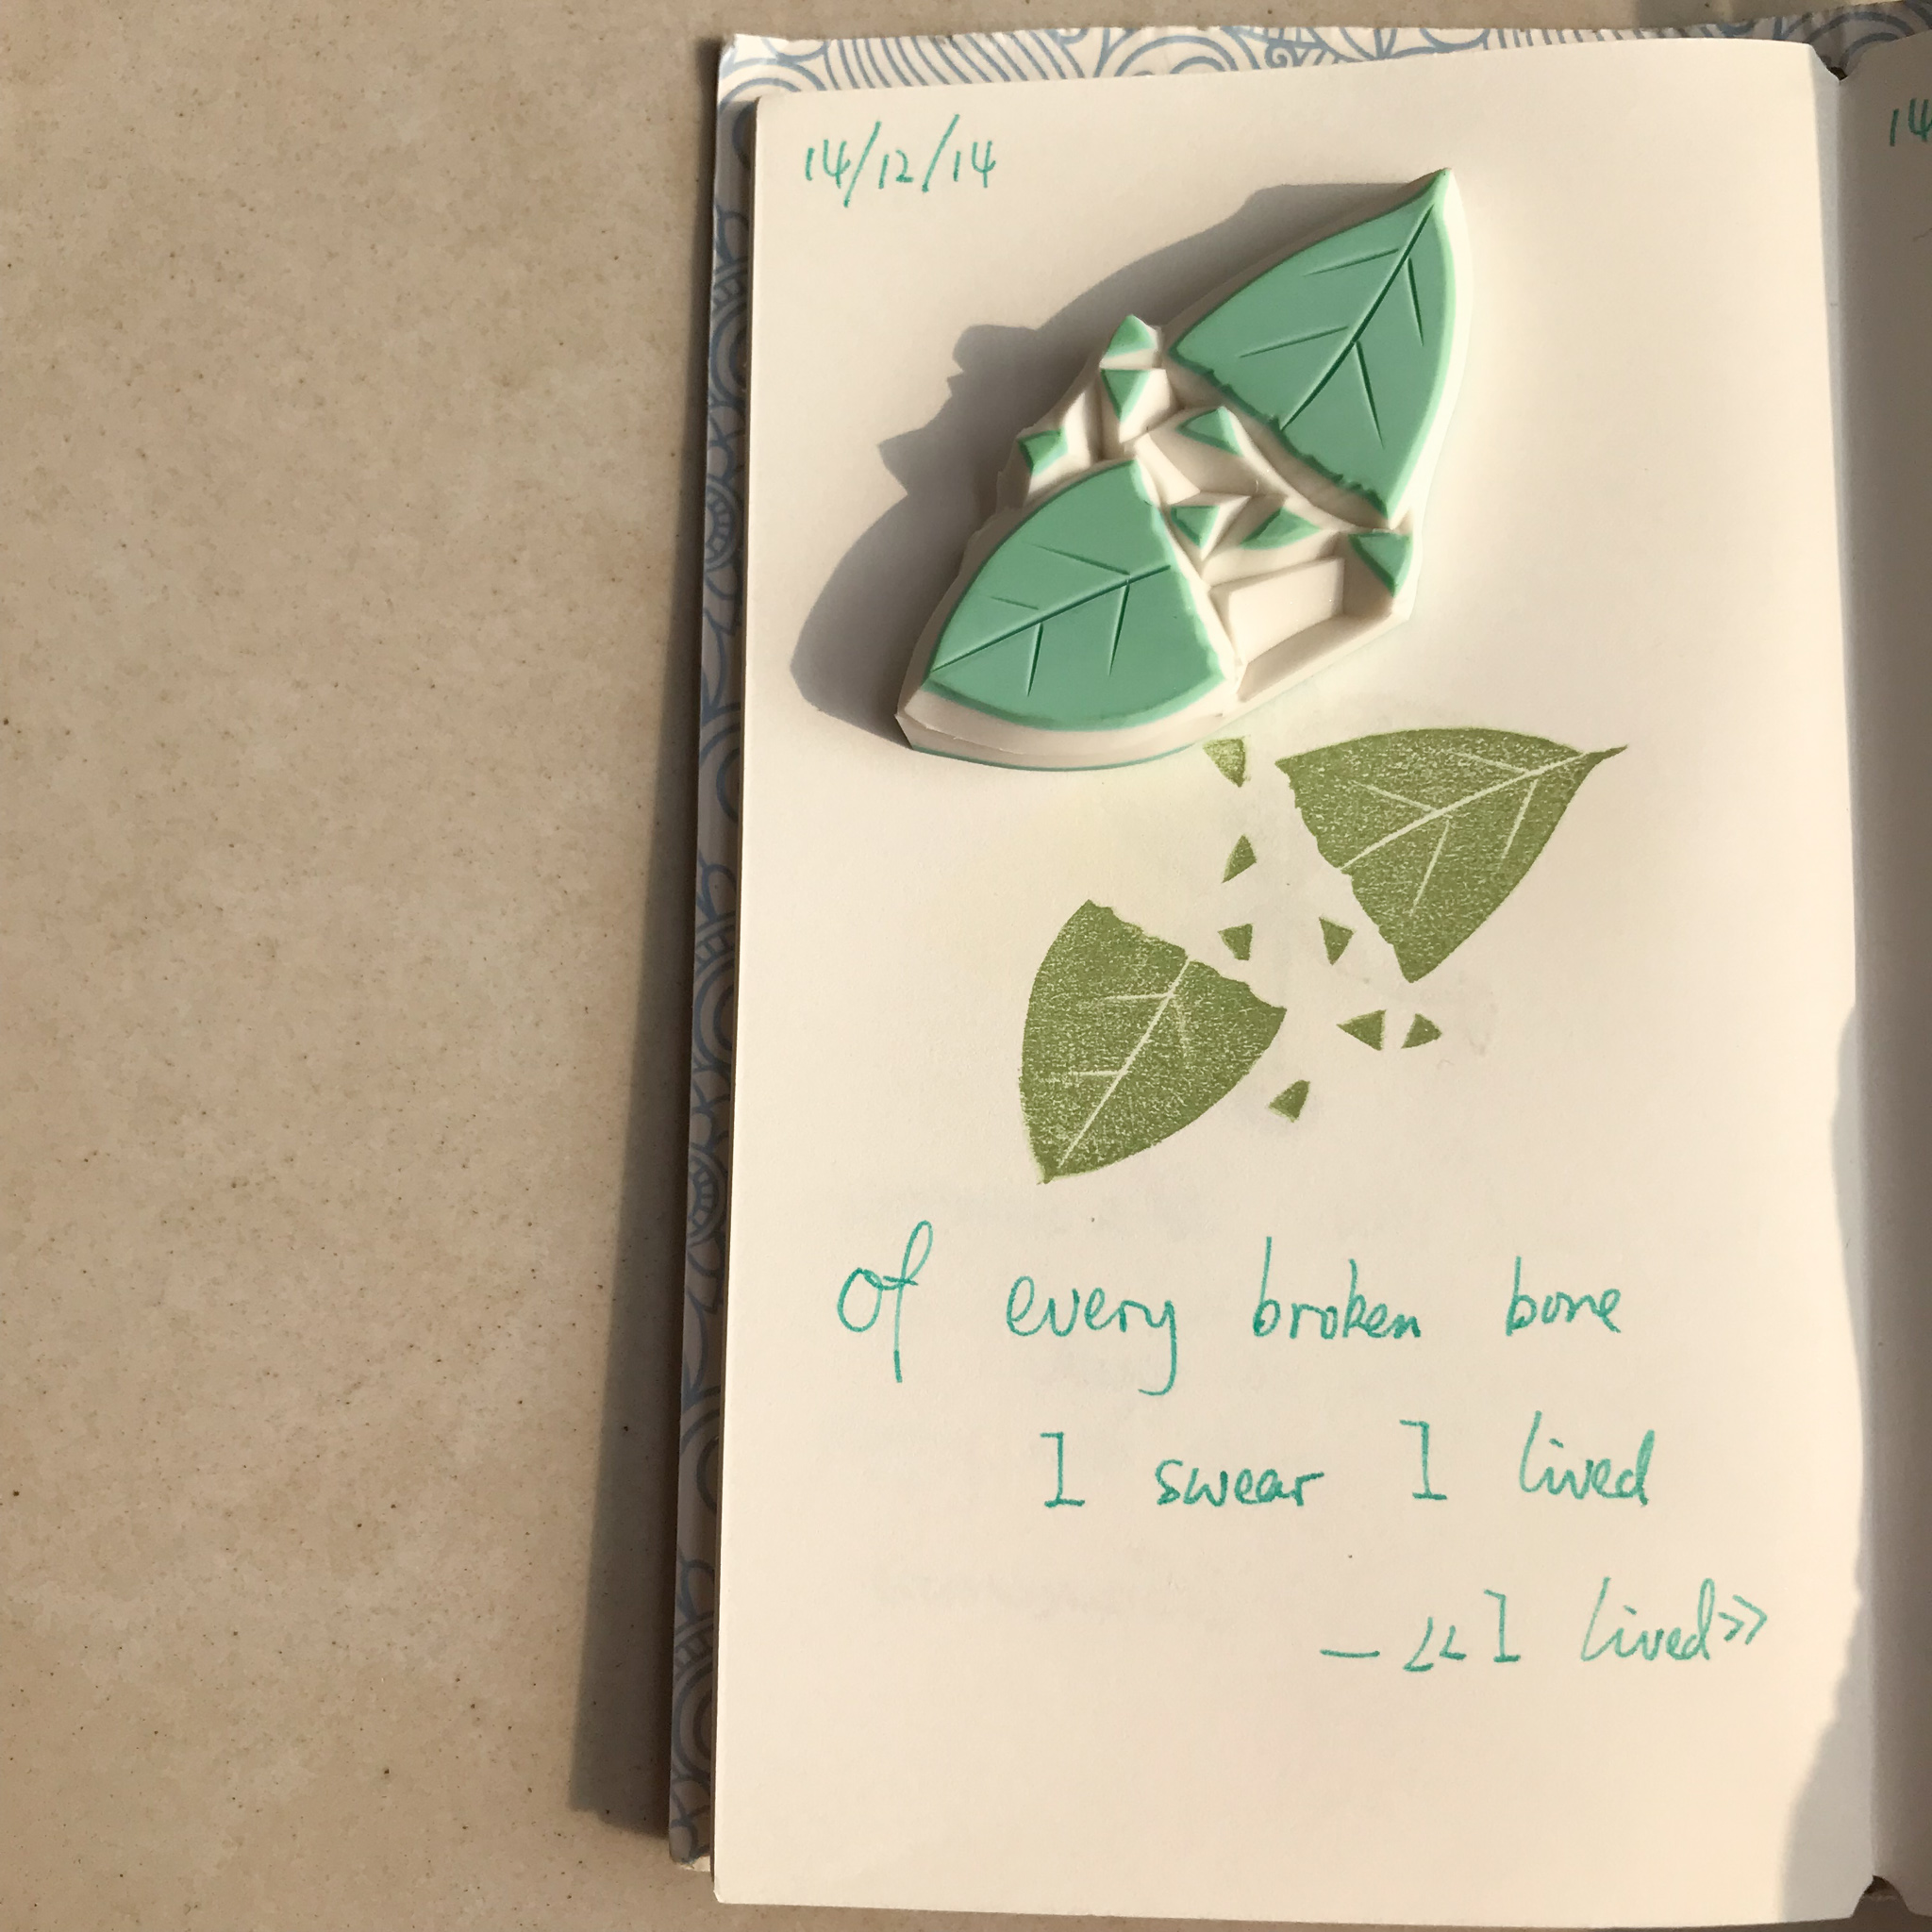 14/12/14
14
of every broken bone
I swear I lived
— <<I lived>>